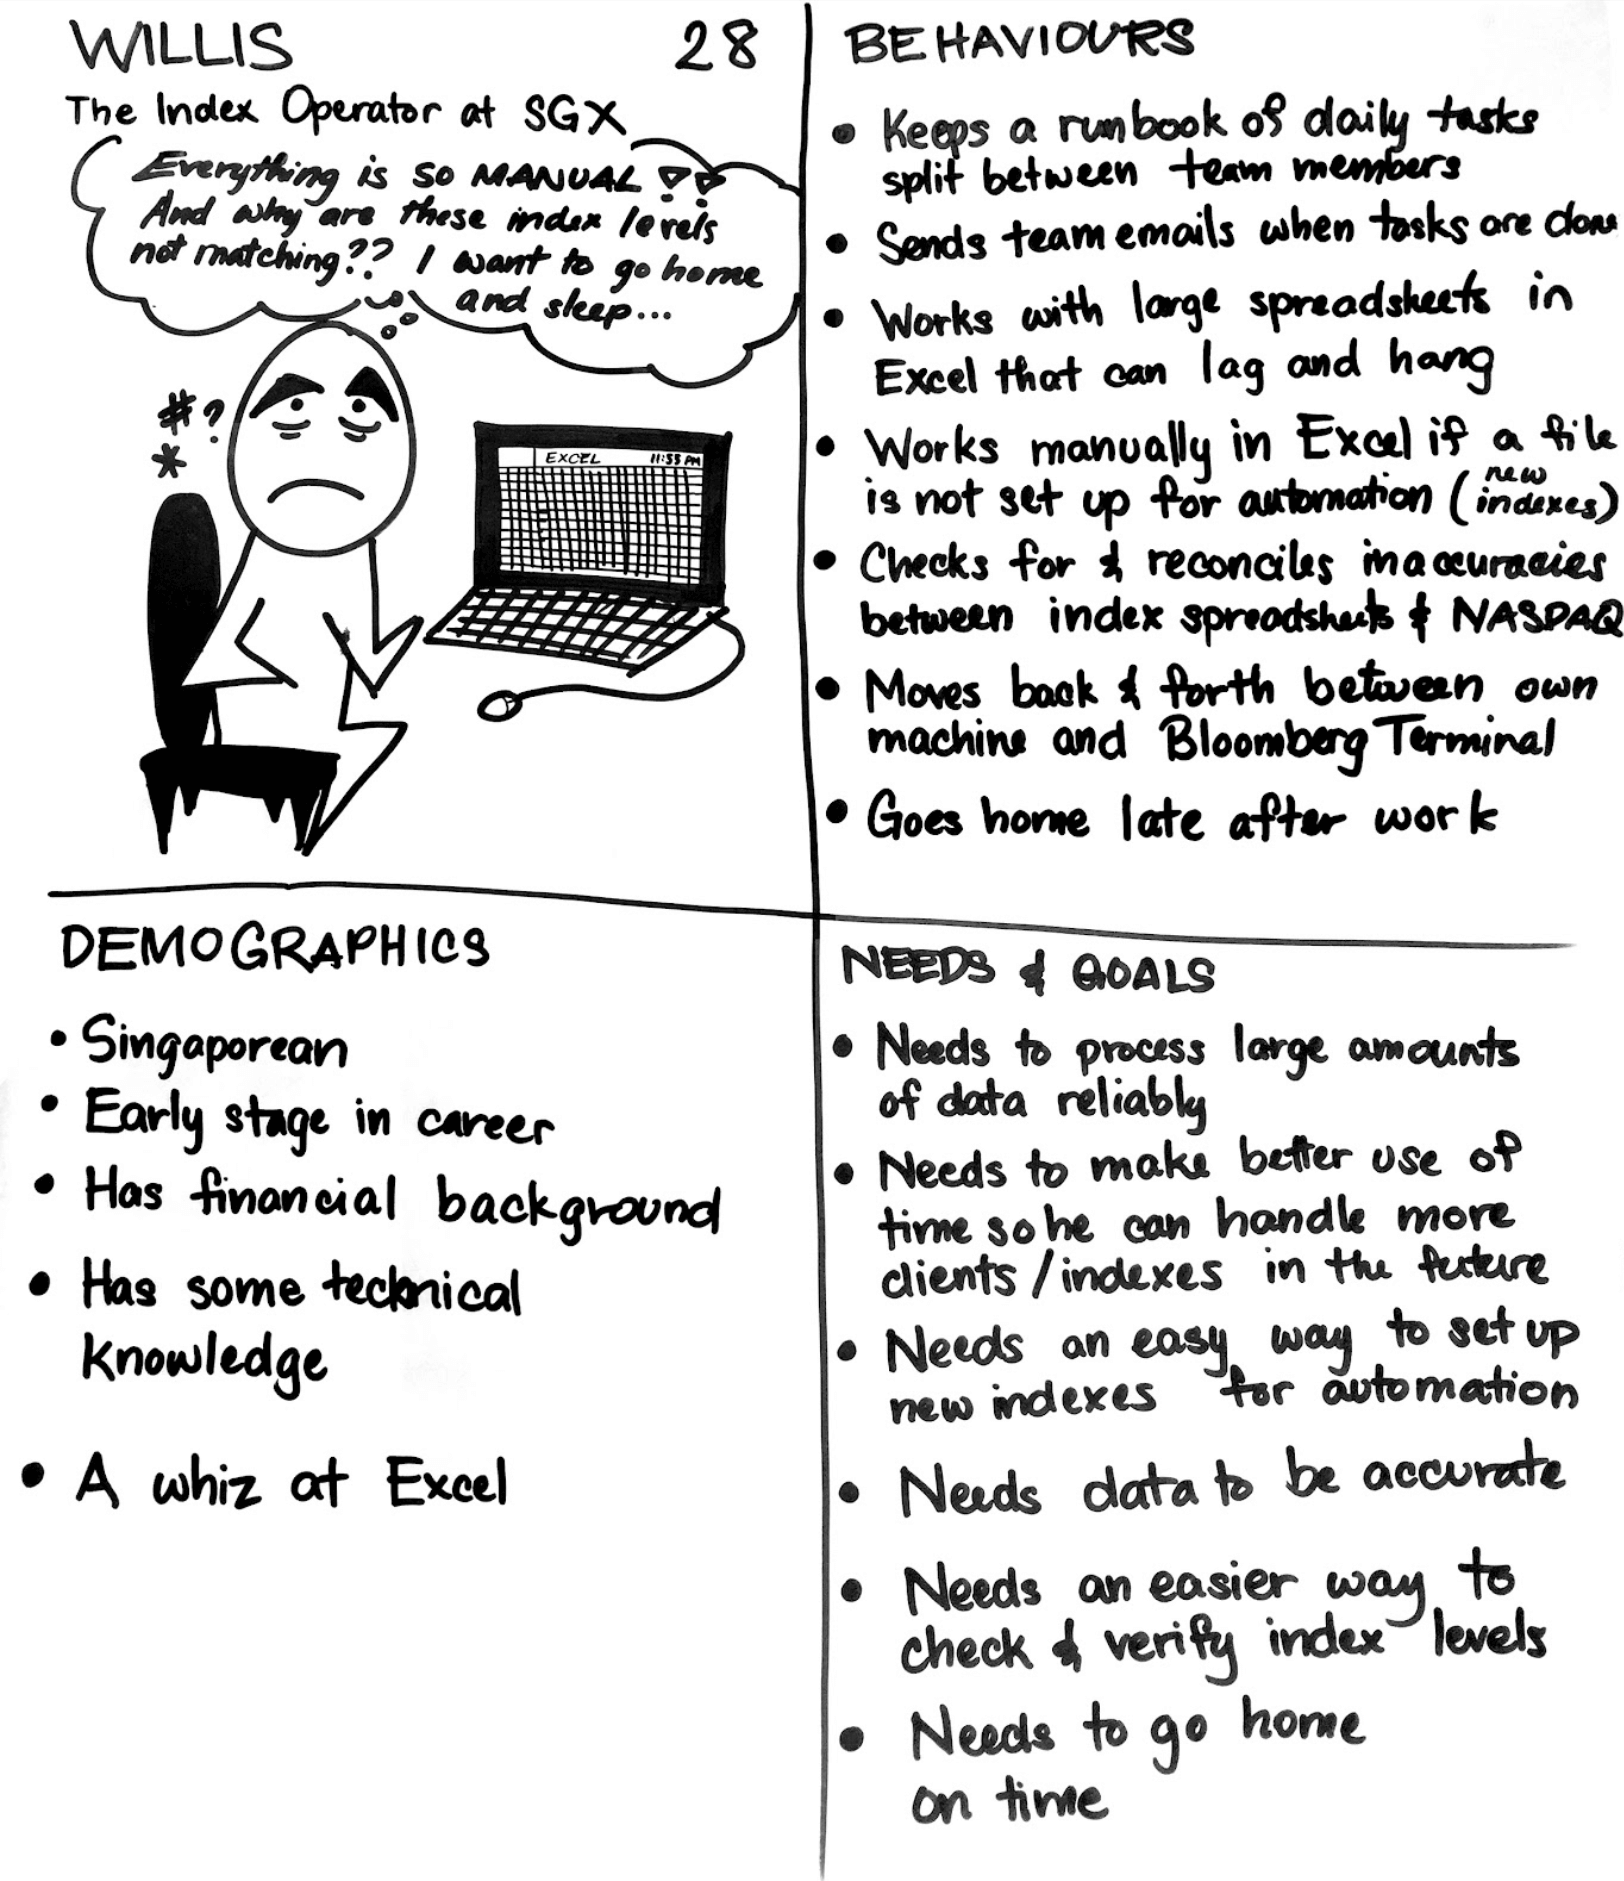 WILLIS 28
The Index Operator at SGX
Everything is SO MANUAL!!
And why are these index levels
not matching?? I want to go home
and sleep...
#?
*
EXCEL 11:55 PM
BEHAVIOURS
• Keeps a runbook of daily tasks
split between team members
• Sends team emails when tasks are done
• Works with large spreadsheets in
Excel that can lag and hang
• Works manually in Excel if a file
is not set up for automation (new indexes)
• Checks for & reconciles inaccuracies
between index spreadsheets & NASDAQ
• Moves back & forth between own
machine and Bloomberg Terminal
• Goes home late after work
DEMOGRAPHICS
• Singaporean
• Early stage in career
• Has financial background
• Has some technical
knowledge
• A whiz at Excel
NEEDS & GOALS
• Needs to process large amounts
of data reliably
• Needs to make better use of
time so he can handle more
clients/indexes in the future
• Needs an easy way to set up
new indexes for automation
• Needs data to be accurate
• Needs an easier way to
check & verify index levels
• Needs to go home
on time